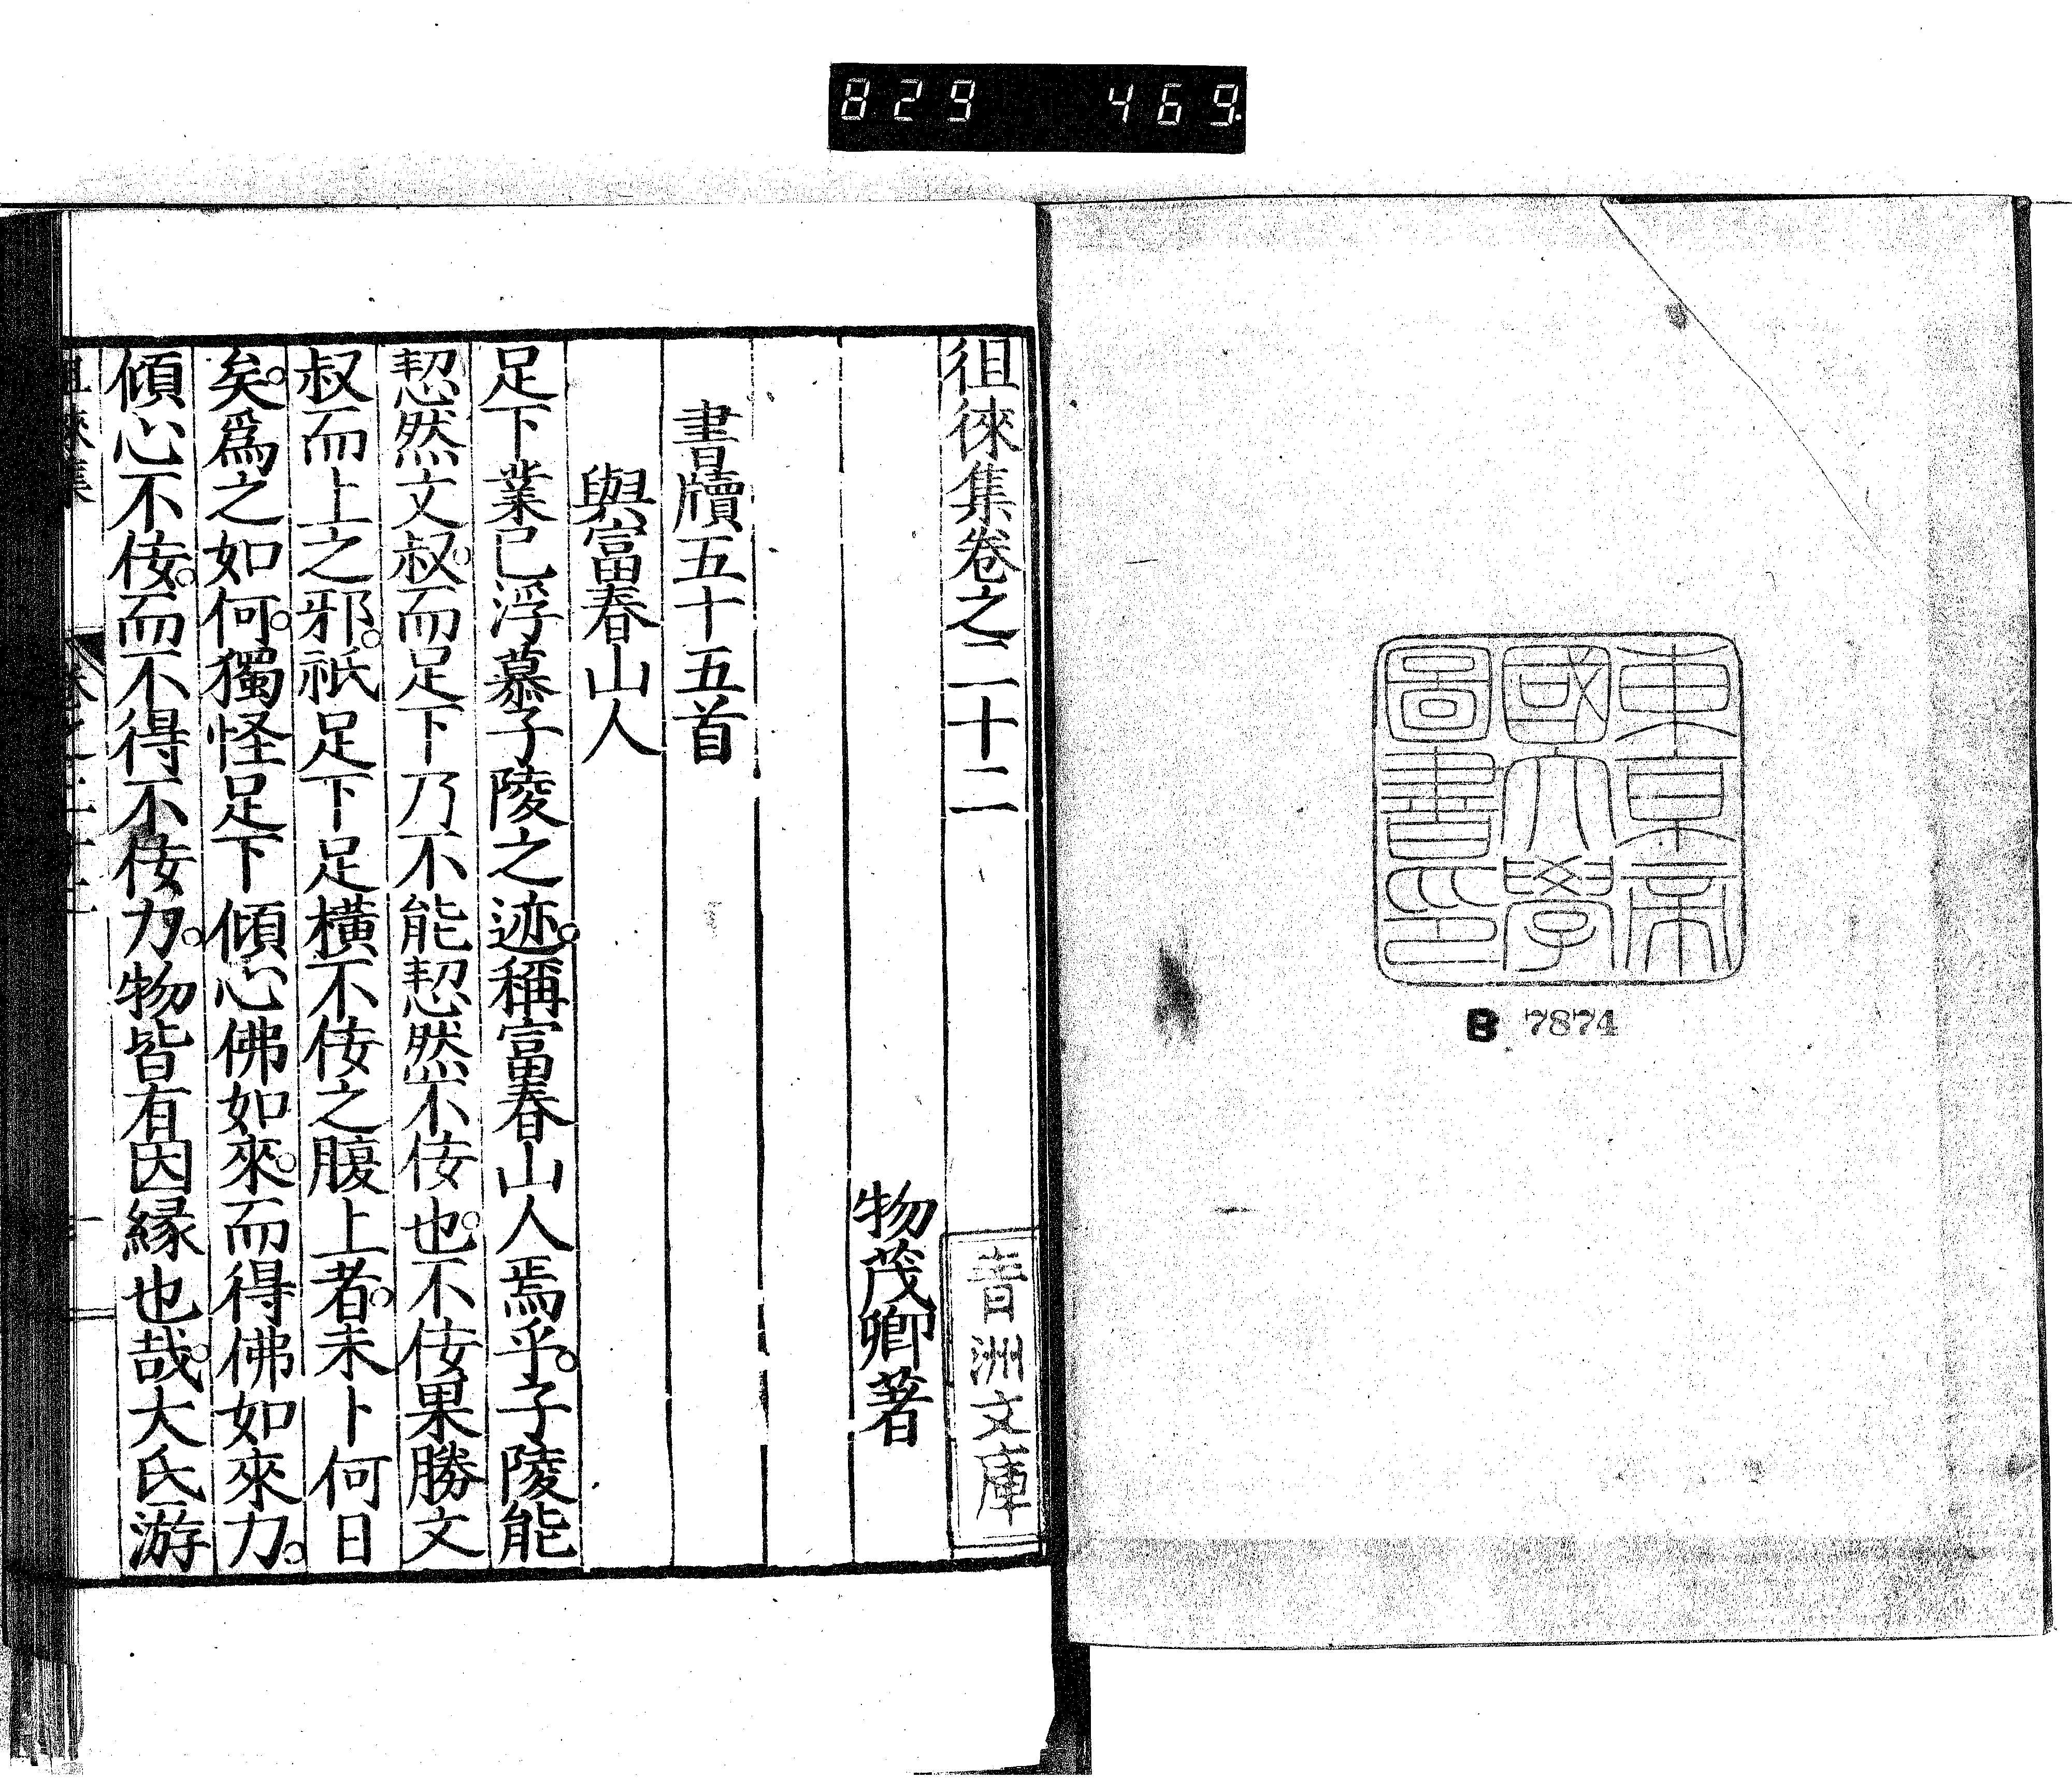 829 469.
東京帝
國大學
圖書印
B 7874
徂徠集卷之二十二
青洲文庫
物茂卿著
書牘五十五首
與富春山人
足下業已浮慕子陵之迹。稱富春山人焉乎。子陵能
恝然文叔。而足下乃不能恝然不佞也。不佞果勝文
叔而上之邪。祇足下足橫不佞之腹上者。未卜何日
矣。爲之如何。獨怪足下傾心佛如來。而得佛如來力。
傾心不佞。而不得不佞力。物皆有因緣也哉。大氐游